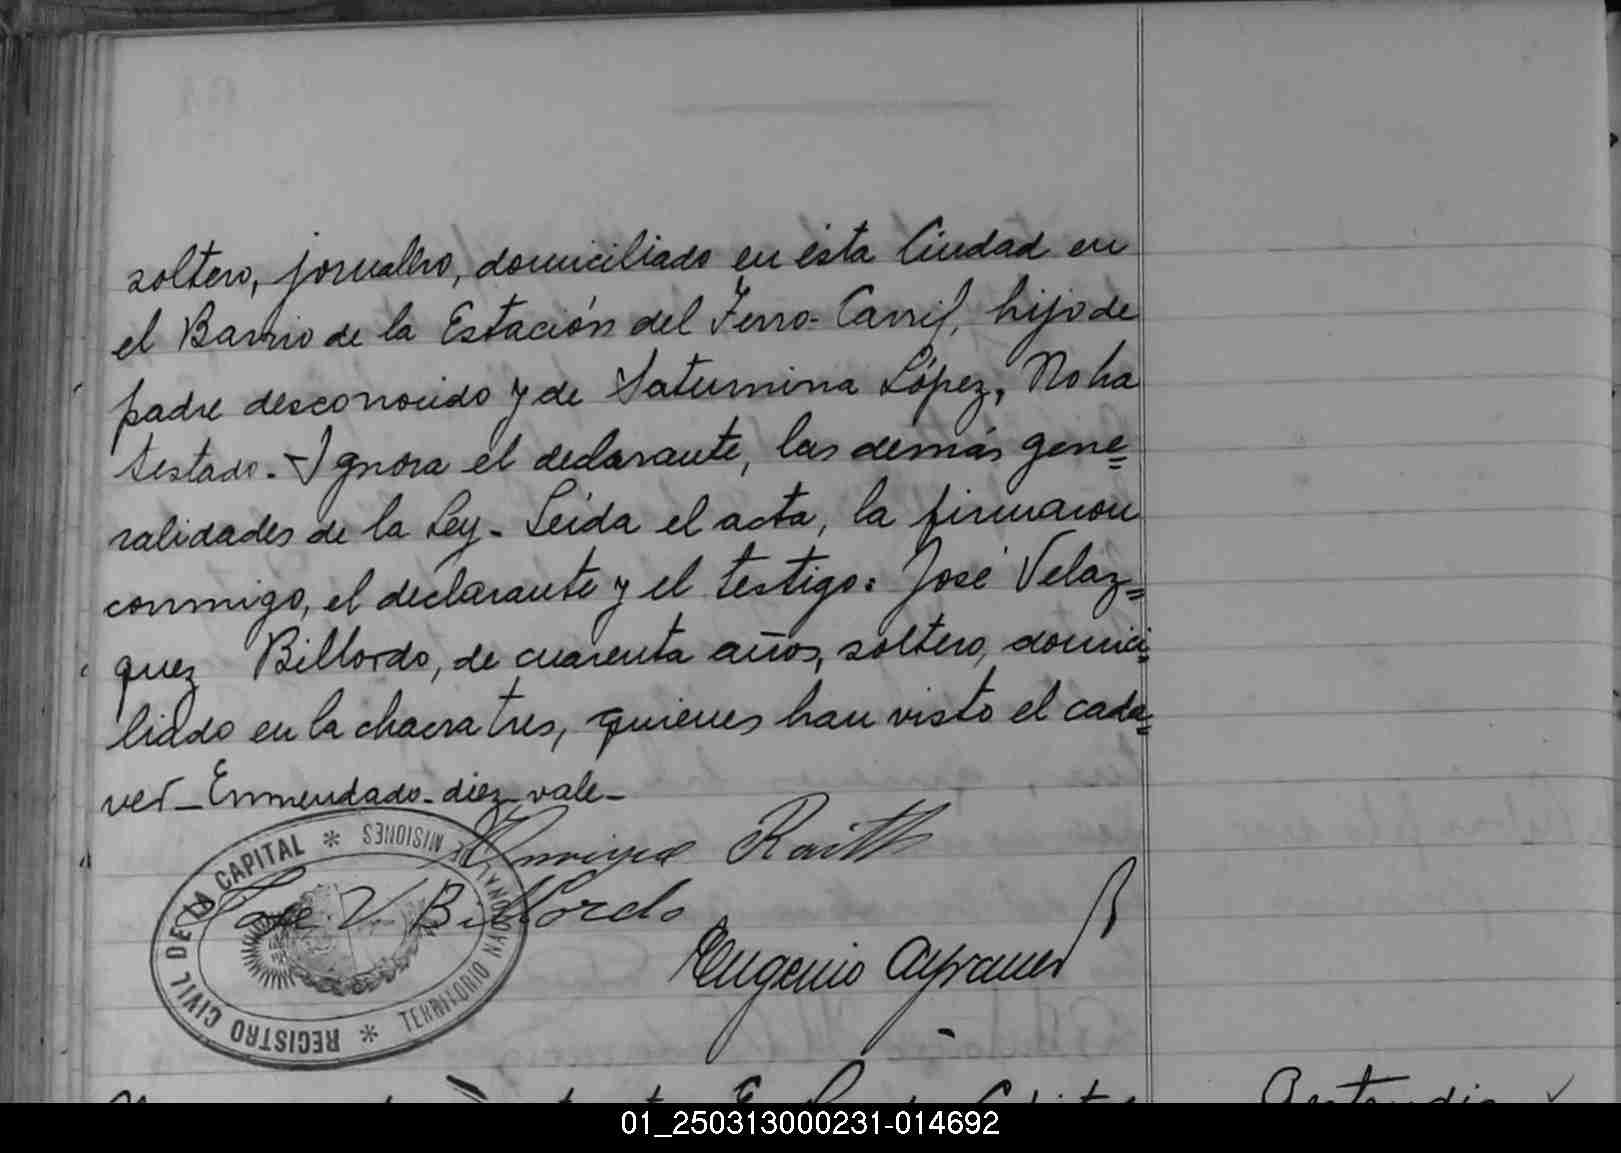 soltero, jornalero, domiciliado en ésta Ciudad en
el Barrio de la Estación del Ferro-Carril, hijo de
padre desconocido y de Saturnina López, No ha
testado.- Ignora el declarante, las demás gene=
ralidades de la Ley- Leída el acta, la firmaron
conmigo, el declarante y el testigo: José Velaz=
quez Billordo, de cuarenta años, soltero, domici=
liado en la chacra tres, quienes han visto el cada=
ver_Enmendado-diez-vale-
Raith
José V. Billordo
Eugenio
REGISTRO CIVIL DE LA CAPITAL * TERRITORIO NACIONAL DE MISIONES *
01_250313000231-014692